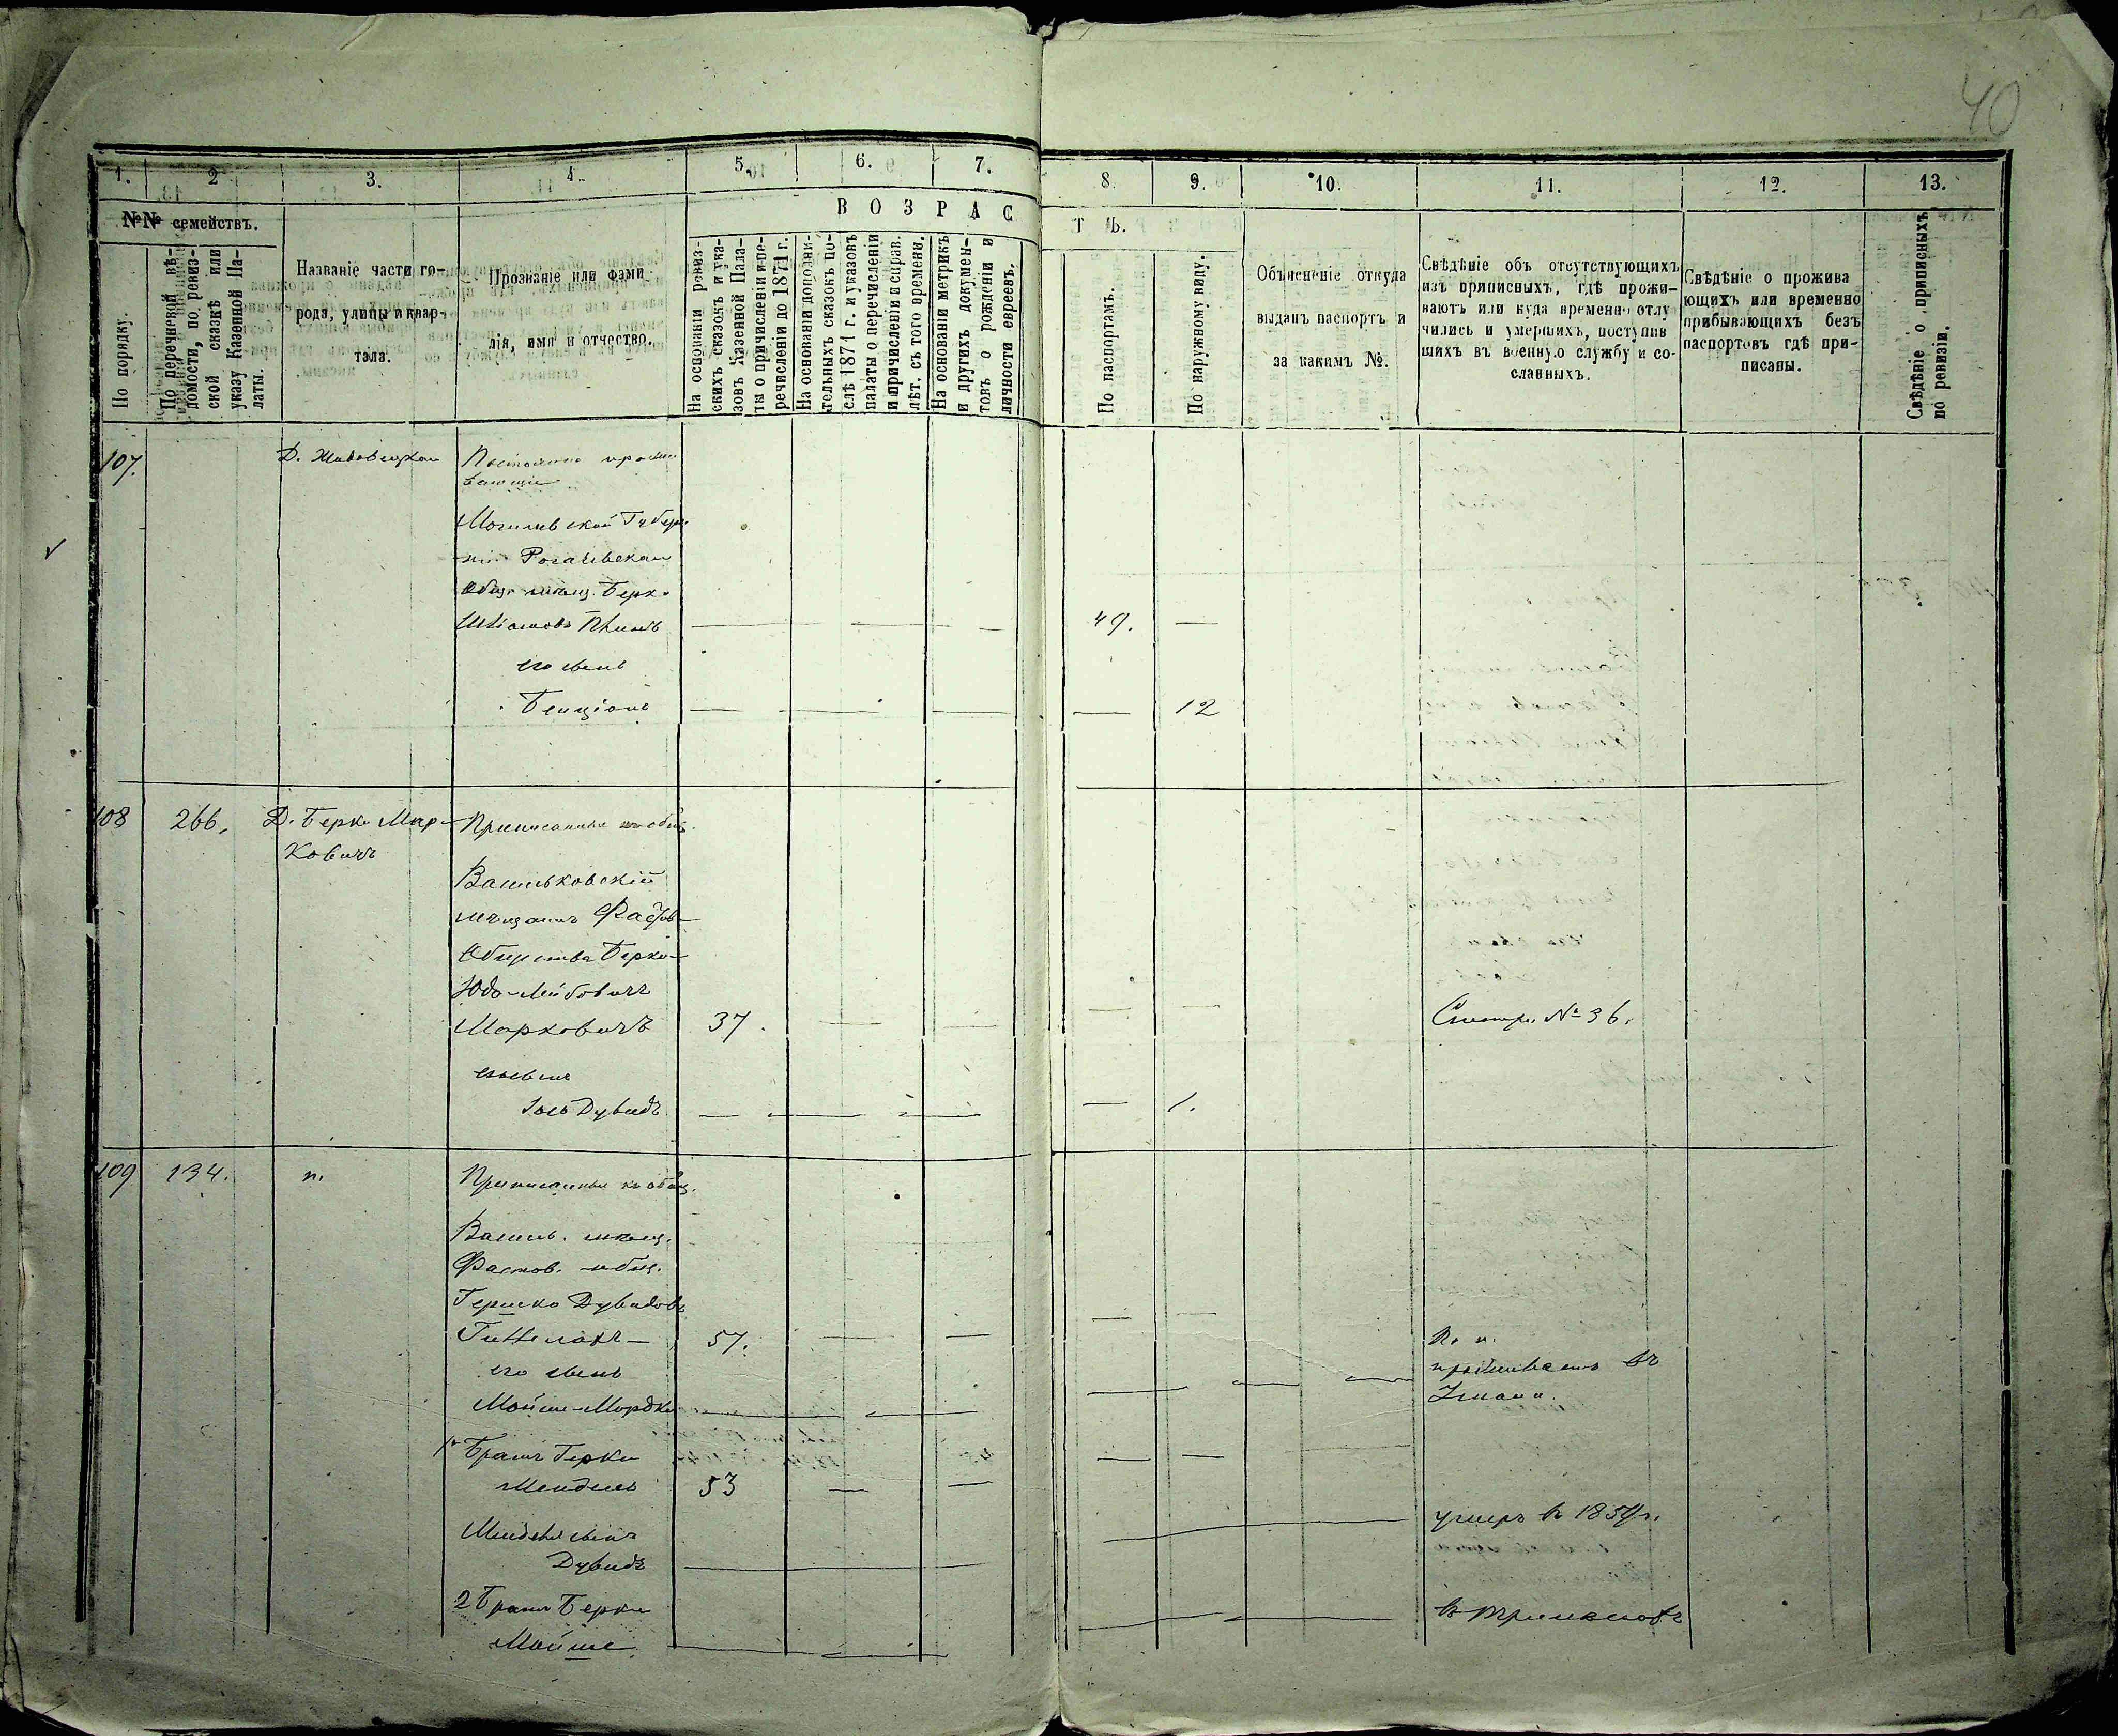 40
1.
2
3.
4.
5.
6.
7.
8.
9.
10.
11.
12.
13.
№№ семействъ.
По порядку.
По перечневой вѣ-
домости, по ревиз-
ской сказкѣ или
указу Казенной Па-
латы.
Названіе части го-
рода, улицы и квар-
тала.
Прозваніе или фами
лія, имя и отчество.
ВОЗРАС
ТЪ.
На основаніи ревиз-
скихъ сказокъ и ука-
зовъ Казенной Пала-
ты о причисленіи и пе-
речисленіи до 1871 г.
На основаніи дополни-
тельныхъ сказокъ по-
слѣ 1871 г. и указовъ
палаты о перечисленіи
и причисленіи и справ.
лѣт. съ того времени.
На основаніи метрикъ
и другихъ докумен-
товъ о рожденіи и
личности евреевъ.
По паспортамъ.
По наружному виду.
Объясненіе откуда
выданъ паспортъ и
за какимъ №.
Свѣдѣніе объ отсутствующихъ
изъ приписныхъ, гдѣ прожи-
ваютъ или куда временно отлу
чились и умершихъ, поступив
шихъ въ военную службу и со-
сланныхъ.
Свѣдѣніе о прожива
ющихъ или временно
прибывающихъ безъ
паспортовъ гдѣ при-
писаны.
Свѣдѣніе о приписныхъ
по ревизіи.
107.
Постоянно прожи
вающіе
Могилевской Губер-
ніи Рогачевскаго
общ. мѣщ. Берко
49. —
его сынъ
Бенціонъ — — — — 12
108 266. Д. Берка Мар-
ковичъ
Приписанные къ общ.
Васильковскій
мѣщанинъ Фастов-
Общества Берко-
Юдо-Лейбовичъ
Марковичъ 37. — — — — Смотри № 36.
его сынъ
Іосъ Дувидъ — — — — 1.
109 134. п.
Приписанные къ общ.
Васильк. мѣщ.
Фастов. общ.
Гершко Дувидовъ
57. — — —
его сынъ
Мойше-Мордко — — —
проживаетъ въ
1й Братъ Герки
Мендель 53 — — — —
Менделя сынъ
Дувидъ
умеръ въ 1854 г.
2 Братъ Берки
Мойше